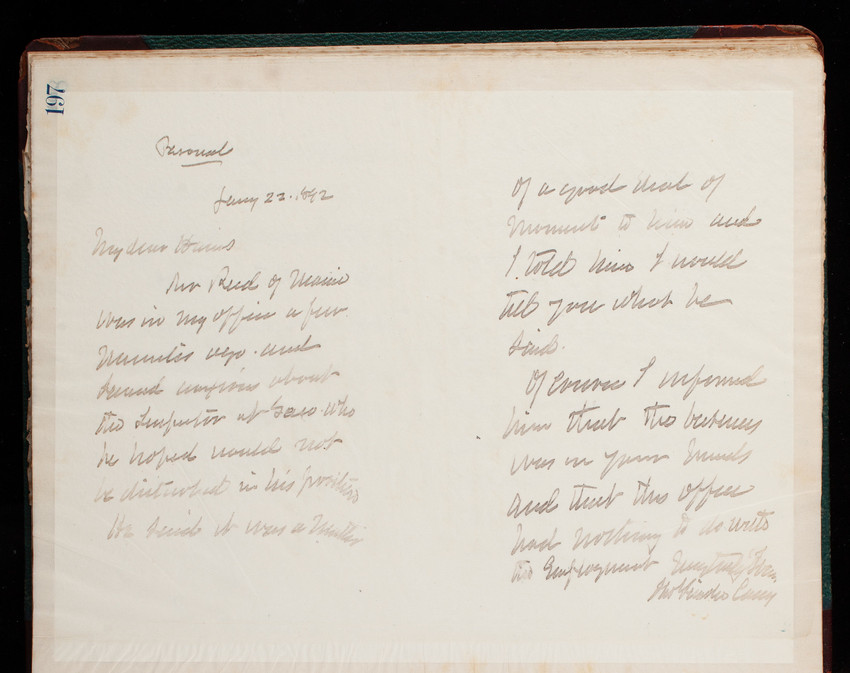 197
Personal
Jany 22. 1892
My dear Hains
Mr Reed of Maine
was in my office a few
minutes ago. and
seemed anxious about
the Inspector at Saco. who
he hoped would not
be disturbed in his position
He said it was a matter
of a good deal of
moment to him and
I told him I would
tell you what he
said.
Of course I informed
him that the business
was in your hands
and that this office
had nothing to do with
the Employment Very truly
Thos Lincoln Casey